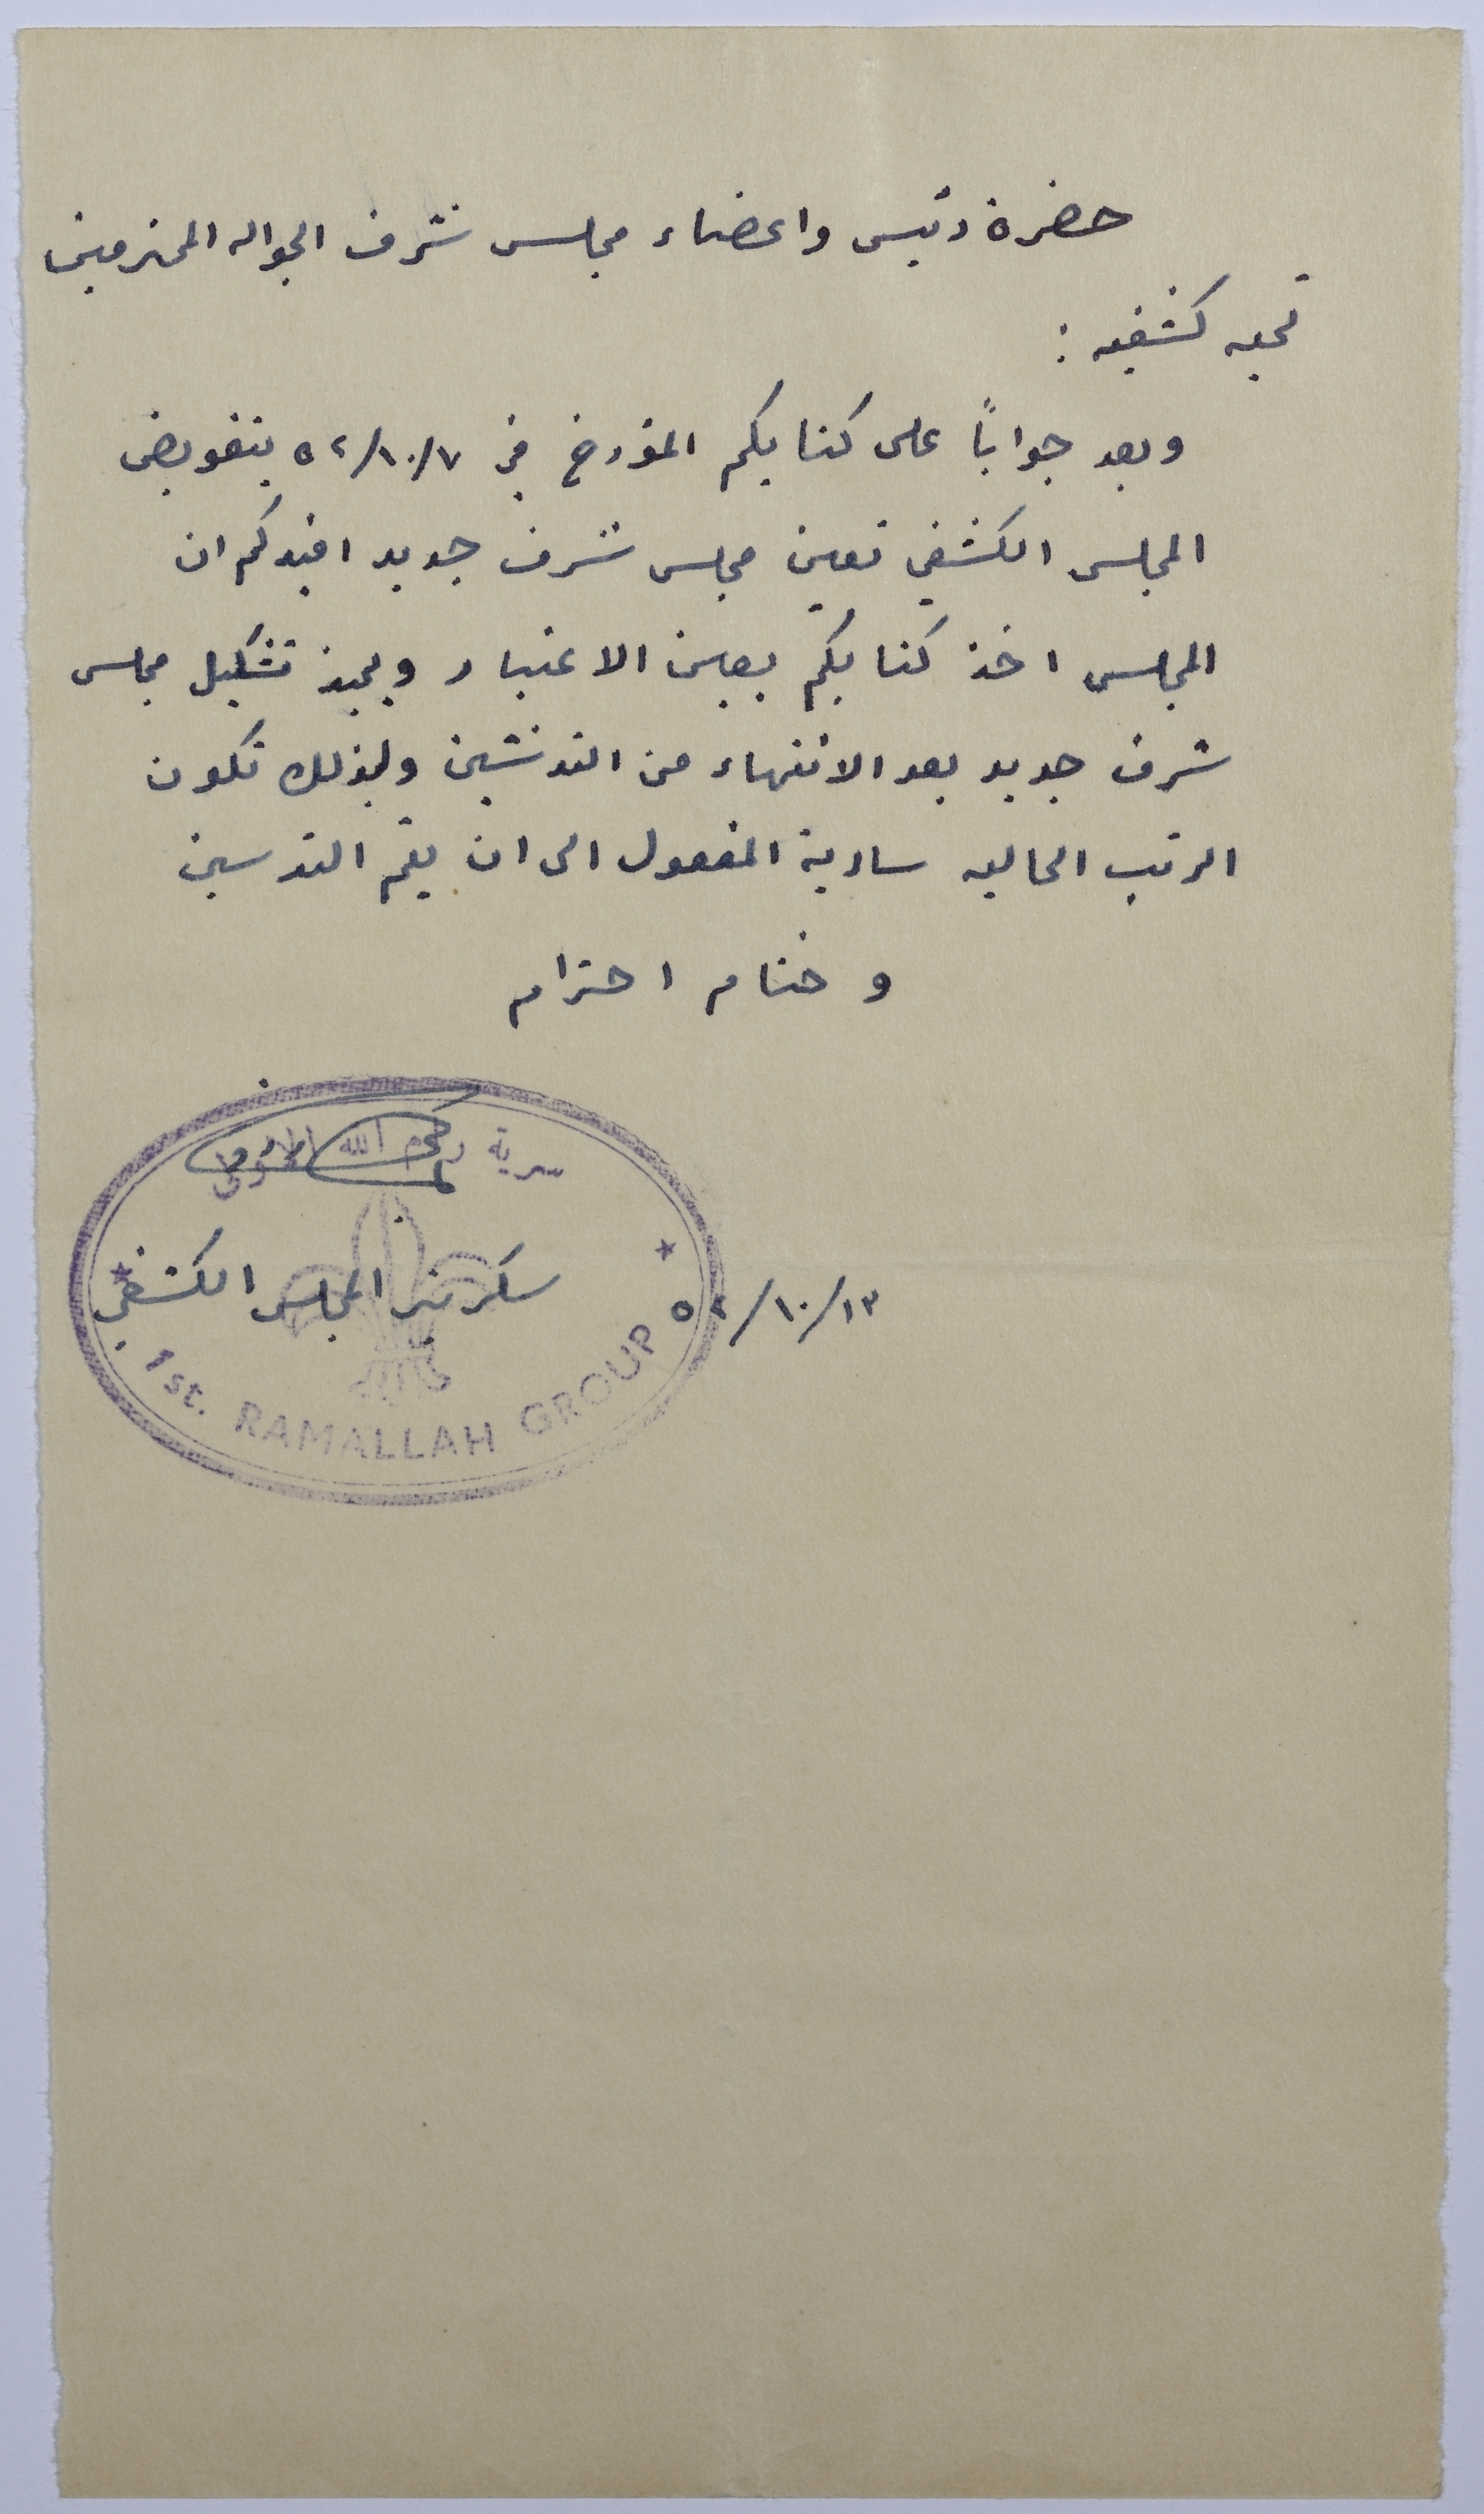 حضرة رئيس واعضاء مجلس شرف الجواله المحترمين
تحيه كشفيه :
وبعد جواباً على كتابكم المؤرخ في ٥٢/١٠/٧ بتفويض
المجلس الكشفي تعين مجلس شرف جديد افيدكم ان
المجلس اخذ كتابكم بعين الاعتبار ويحبذ تشكيل مجلس
شرف جديد بعد الانتهاء من التدشين ولذلك تكون
الرتب الحاليه سارية المفعول الى ان يتم التدسين
وختام احترام
سرية رام الله الاولى
سكرتير المجلس الكشفي
٥٢/١٠/١٣
1st. RAMALLAH GROUP